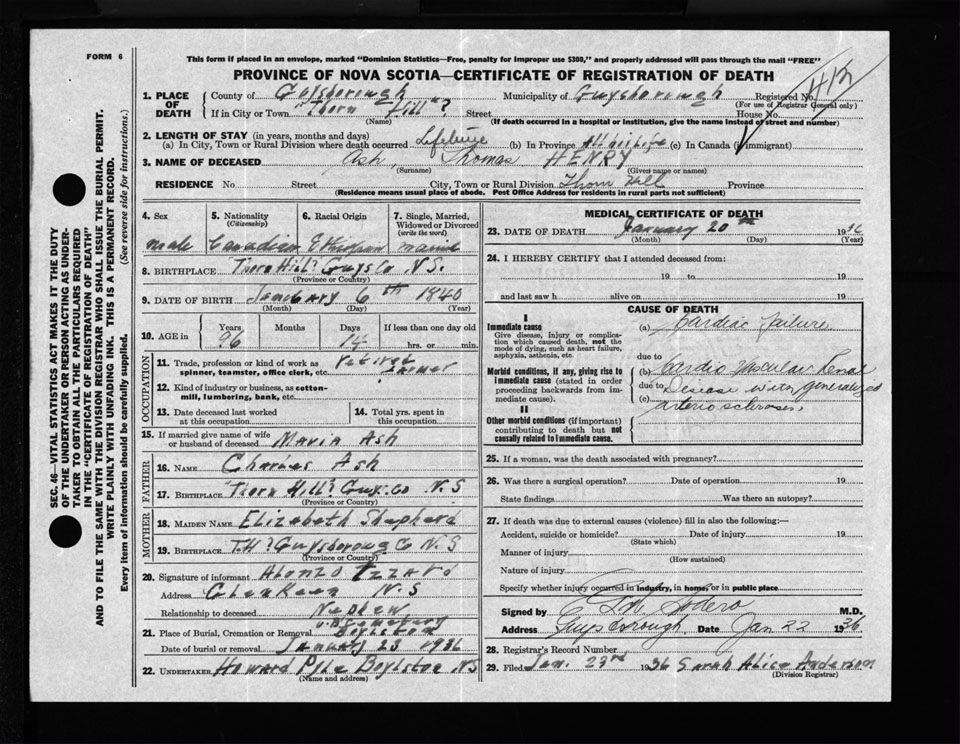 FORM 6
This form if placed in an envelope, marked "Dominion Statistics—Free, penalty for improper use $300," and properly addressed will pass through the mail "FREE"
PROVINCE OF NOVA SCOTIA—CERTIFICATE OF REGISTRATION OF DEATH
1. PLACE OF DEATH
County of Guysborough Municipality of Guysborough Registered No.
(For use of Registrar General only)
If in City or Town "Thorn Hill"? Street House No.
(Name) (If death occurred in a hospital or institution, give the name instead of street and number)
2. LENGTH OF STAY (in years, months and days)
(a) In City, Town or Rural Division where death occurred Lifetime (b) In Province All his Life (c) In Canada (if immigrant)
3. NAME OF DECEASED Ash, Thomas HENRY
(Surname) (Given name or names)
RESIDENCE No. Street City, Town or Rural Division Thorn Hill Province
(Residence means usual place of abode. Post Office Address for residents in rural parts not sufficient)
SEC. 46—VITAL STATISTICS ACT MAKES IT THE DUTY
OF THE UNDERTAKER OR PERSON ACTING AS UNDER-
TAKER TO OBTAIN ALL THE PARTICULARS REQUIRED
IN THE "CERTIFICATE OF REGISTRATION OF DEATH"
AND TO FILE THE SAME WITH THE DIVISION REGISTRAR WHO SHALL ISSUE THE BURIAL PERMIT.
WRITE PLAINLY WITH UNFADING INK. THIS IS A PERMANENT RECORD.
Every item of information should be carefully supplied. (See reverse side for instructions.)
4. Sex
male
5. Nationality
(Citizenship)
Canadian
6. Racial Origin
Ethiopian
7. Single, Married,
Widowed or Divorced
(write the word)
married
8. BIRTHPLACE "Thorn Hill? Guys Co. N.S.
(Province or Country)
9. DATE OF BIRTH January 6th 1840
(Month) (Day) (Year)
10. AGE in
Years Months Days If less than one day old
96 14 hrs. or min.
OCCUPATION
11. Trade, profession or kind of work as
spinner, teamster, office clerk, etc.
Retired
Farmer
12. Kind of industry or business, as cotton-
mill, lumbering, bank, etc.
13. Date deceased last worked
at this occupation
14. Total yrs. spent in
this occupation
15. If married give name of wife
or husband of deceased Maria Ash
FATHER
16. NAME Charles Ash
17. BIRTHPLACE "Thorn Hill? Guy. Co N.S
(Province or Country)
MOTHER
18. MAIDEN NAME Elizabeth Shepherd
19. BIRTHPLACE T.H? Guysboroug Co N.S
(Province or Country)
20. Signature of informant Alonzo Izzard
Address Glenkeen N.S
Relationship to deceased Nephew
21. Place of Burial, Cremation or Removal Cemetery
Boylston
Date of burial or removal January 23 1936
22. UNDERTAKER Howard Pyke Boylston NS
(Name and address)
MEDICAL CERTIFICATE OF DEATH
23. DATE OF DEATH January 20th 1936
(Month) (Day) (Year)
24. I HEREBY CERTIFY that I attended deceased from:
19 to 19
and last saw h alive on 19
CAUSE OF DEATH
I
Immediate cause
Give disease, injury or complica-
tion which caused death, not the
mode of dying, such as heart failure,
asphyxia, asthenia, etc.
(a) Cardiac failure
due to
Morbid conditions, if any, giving rise to
immediate cause (stated in order
proceeding backwards from im-
mediate cause).
(b) Cardio vascular Renal
due to Disease with generalized
(c) arterio sclerosis.
II
Other morbid conditions (if important)
contributing to death but not
causally related to immediate cause.
25. If a woman, was the death associated with pregnancy?
26. Was there a surgical operation? Date of operation 19
State findings Was there an autopsy?
27. If death was due to external causes (violence) fill in also the following:—
Accident, suicide or homicide? Date of injury 19
(State which)
Manner of injury
(How sustained)
Nature of injury
Specify whether injury occurred in industry, in home, or in public place
Signed by Sodero M.D.
Address Guysborough. Date Jan 22 1936
28. Registrar's Record Number
29. Filed Jan. 23rd 1936 Sarah Alice Anderson
(Division Registrar)